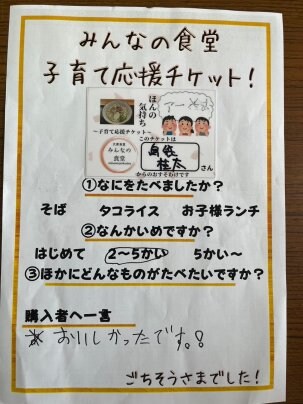 みんなの食堂
子育て応援チケット!
ほんの
気持ち
~子育て応援チケット~
このチケットは
みんなの
食堂
桂太
さん
からのおすそわけです
①なにをたべましたか?
そば タコライス お子様ランチ
②なんかいめですか?
はじめて 2~5かい 5かい~
③ほかにどんなものがたべたいですか?
購入者へ一言
おいしかったです。!
ごちそうさまでした!